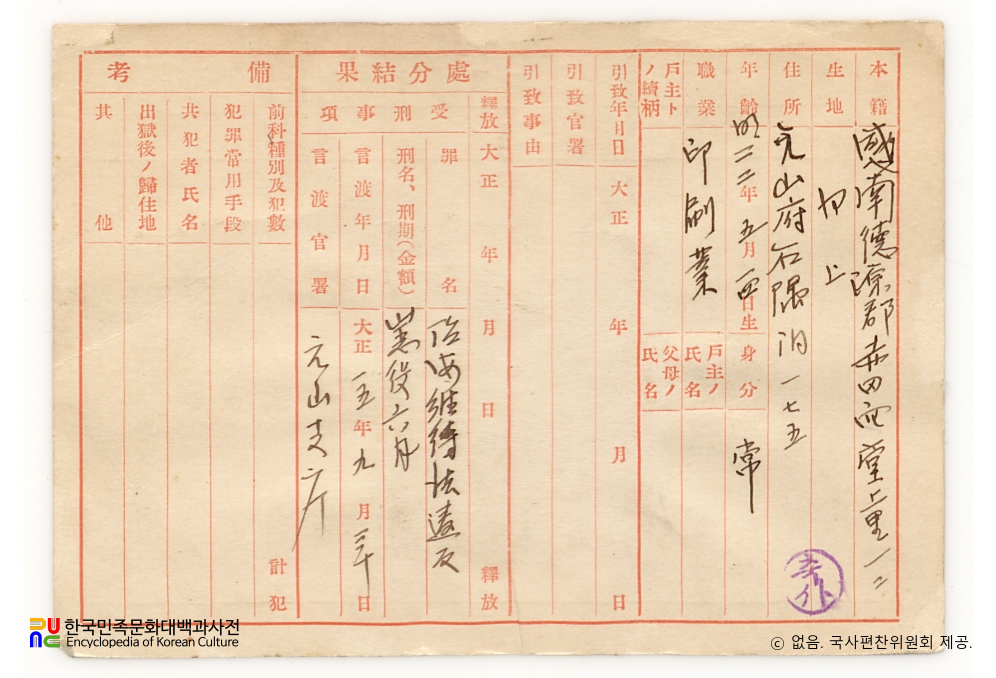 本籍 咸南德源郡赤田面堂上里一二
生地 仝上
住所 元山府石隅洞一七五
年齡 明二二年五月四日生
身分 常
職業 印刷業
戶主ノ氏名
戶主トノ續柄
父母ノ氏名
引致年月日 大正 年 月 日
引致官署
引致事由
處分結果
釋放 大正 年 月 日 釋放
受刑事項
罪名 治安維持法違反
刑名、刑期(金額) 懲役六月
言渡年月日 大正一五年九月三十日
言渡官署 元山支庁
備考
前科種別及犯數 計 犯
犯罪常用手段
共犯者氏名
出獄後ノ歸住地
其他
한국민족문화대백과사전
Encyclopedia of Korean Culture
ⓒ 없음. 국사편찬위원회 제공.